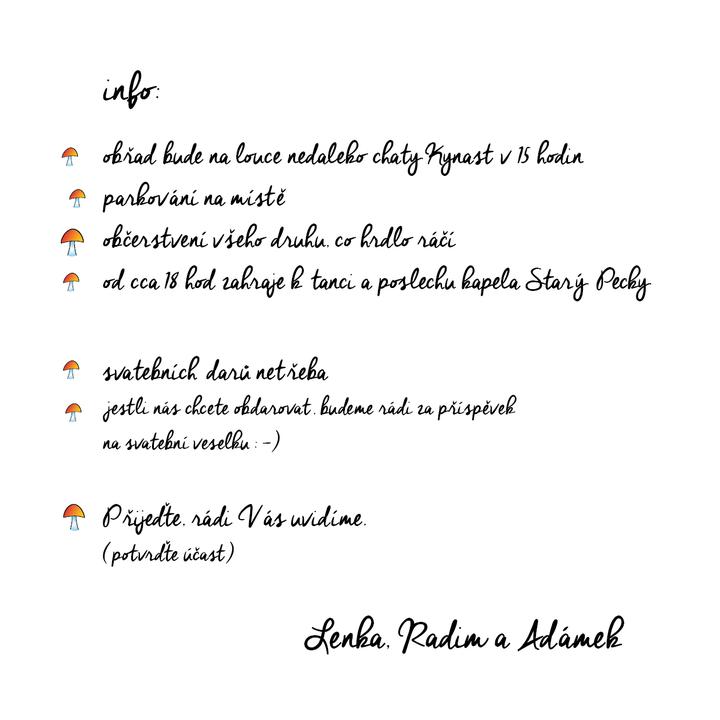 info:
obřad bude na louce nedaleko chaty Kynast v 15 hodin
parkování na místě
občerstvení všeho druhu, co hrdlo ráčí
od cca 18 hod zahraje k tanci a poslechu kapela Starý Pecky
svatebních darů netřeba
jestli nás chcete obdarovat, budeme rádi za příspěvek
na svatební veselku :-)
Přijeďte, rádi Vás uvidíme.
(potvrďte účast)
Lenka, Radim a Adámek